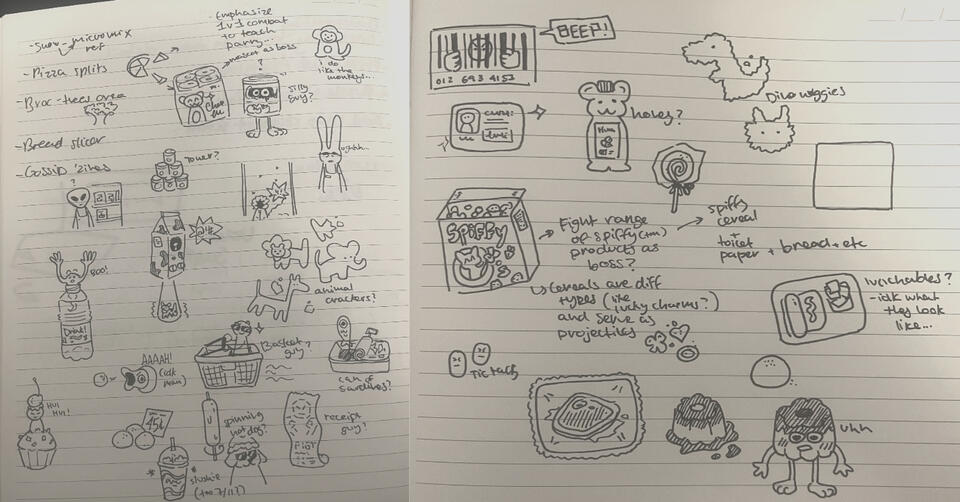 - Show - micromix
ref
- Pizza splits
- Broc-trees area
- Bread slicer
- Gossip 'zines
- Emphasize
1v1 combat
to teach
parry...
mascot as boss
I do
like the
monkeys...
?
silly
guy?
Tower?
ughhh...
?
@!#
BOO!
Drink!
animal
crackers?
AAAAH!
Basket
guy?
can of
sardines?
HUI
HUI!
45¢
spinning
hot dog?
receipt
guy?
slushie
(too 7/11?)
BEEP!
012 693 4152
honey?
Dino veggies
SPIFFY
Fight range
of spiffy(tm)
products as
boss?
spiffy
cereal
+
toilet
paper + bread + etc
Cereals are diff
types (like
lucky charms?)
and serve as
projectiles
lunchables?
- idk what
they look
like...
Tic tacs
uhh